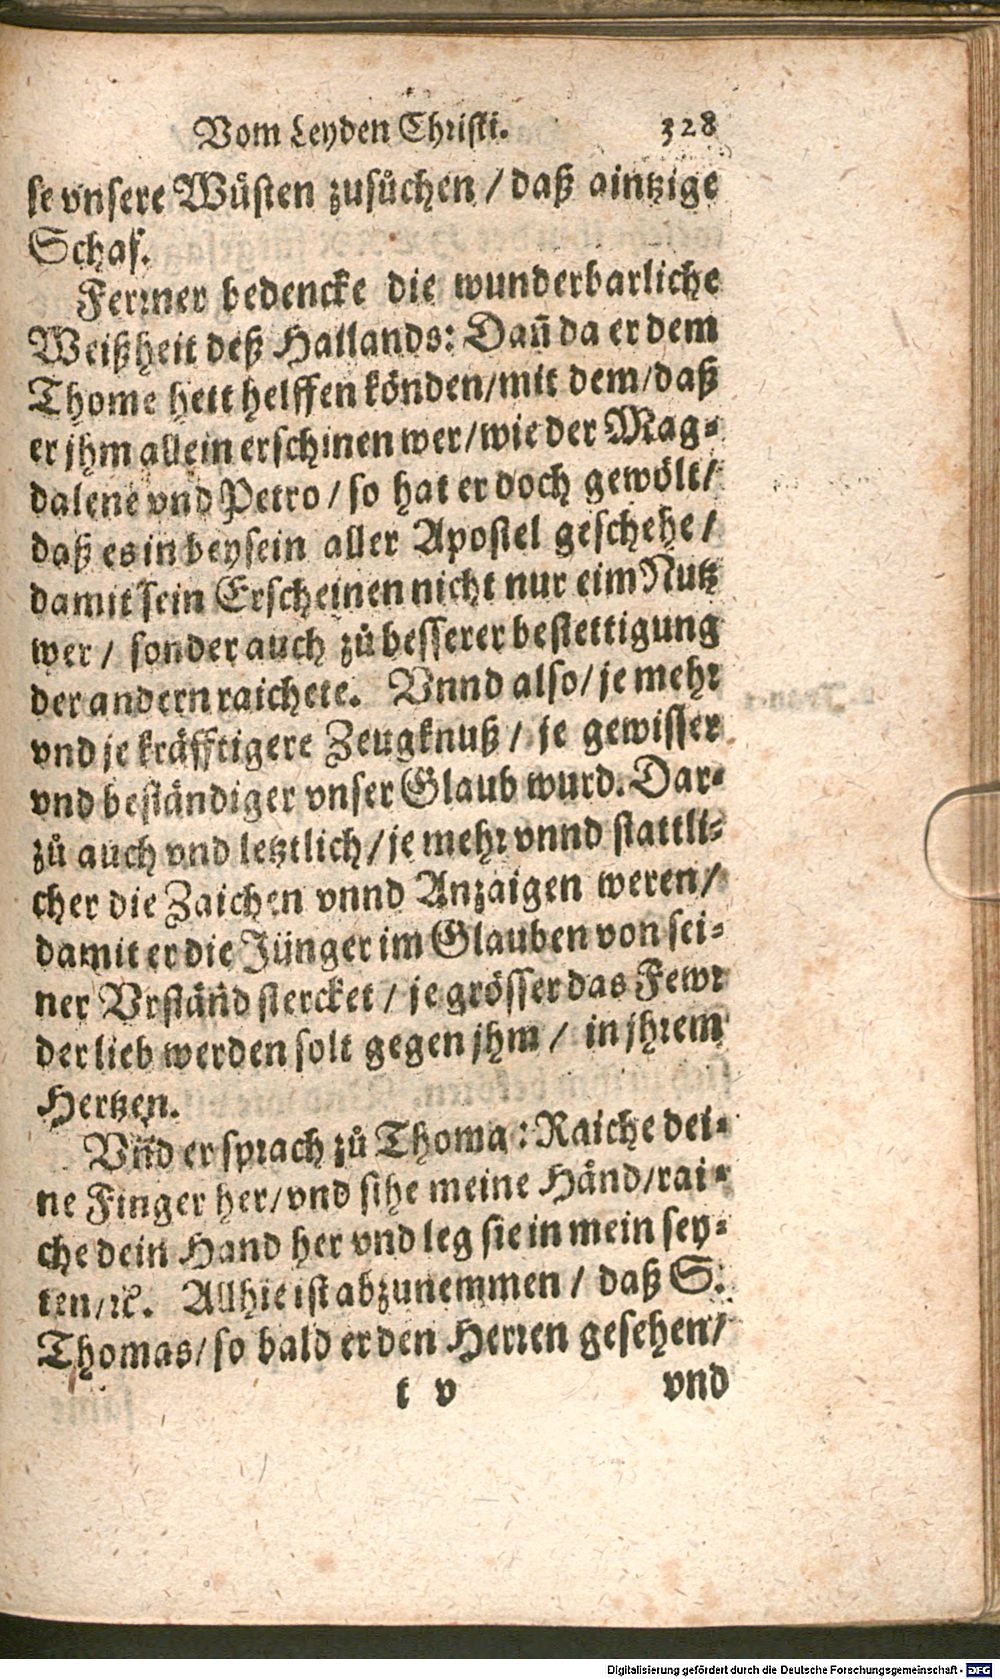 Vom Leyden Christi. 328
se vnsere Wüsten zusůchen / daß aintzige
Schaf.
Ferrner bedencke die wunderbarliche
Weißheit deß Hailands: Dañ da er dem
Thome hett helffen könden/mit dem/daß
er jhm allein erschinen wer/wie der Mag-
dalene vnd Petro / so hat er doch gewölt/
daß es in beysein aller Apostel geschehe /
damit sein Erscheinen nicht nur eim Nutz
wer / sonder auch zů besserer bestettigung
der andern raichete. Vnnd also/ je mehr
vnd je kräfftigere Zeugknuß / je gewisser
vnd beständiger vnser Glaub wurd. Dar-
zů auch vnd letztlich/ je mehr vnnd stattli-
cher die Zaichen vnnd Anzaigen weren/
damit er die Jünger im Glauben von sei-
ner Vrständ stercket / je grösser das Fewr
der lieb werden solt gegen jhm / in jhrem
Hertzen.
Vñd er sprach zů Thoma : Raiche dei-
ne Finger her/vnd sihe meine Händ/rai-
che dein Hand her vnd leg sie in mein sey-
ten/ꝛc. Allhie ist abzunemmen / daß S.
Thomas/ so bald er den Herren gesehen/
t v vnd
Digitalisierung gefördert durch die Deutsche Forschungsgemeinschaft - DFG